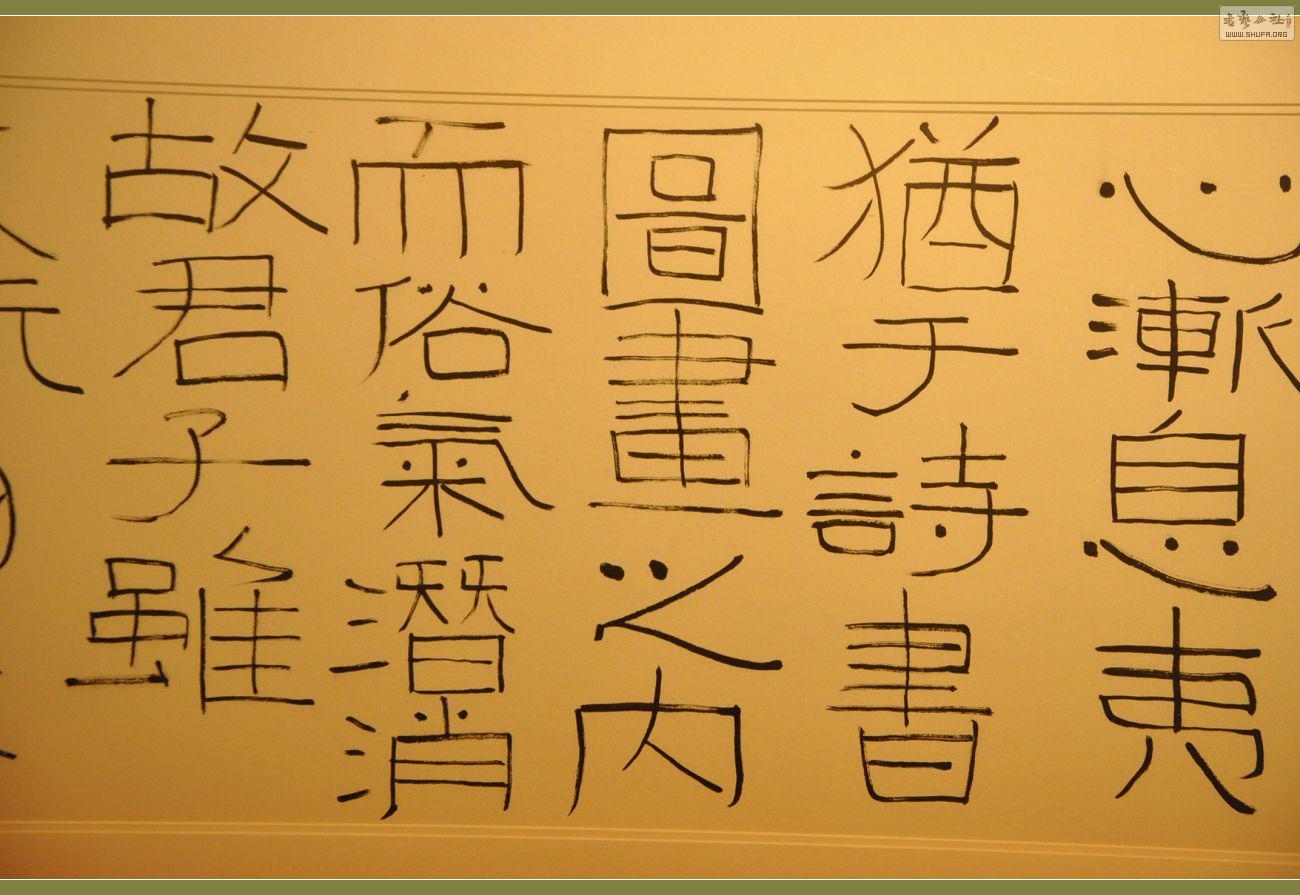 心漸息夷
猶于詩書
圖畫之内
而俗氣潛消
故君子雖
書藝公社
WWW.SHUFA.ORG